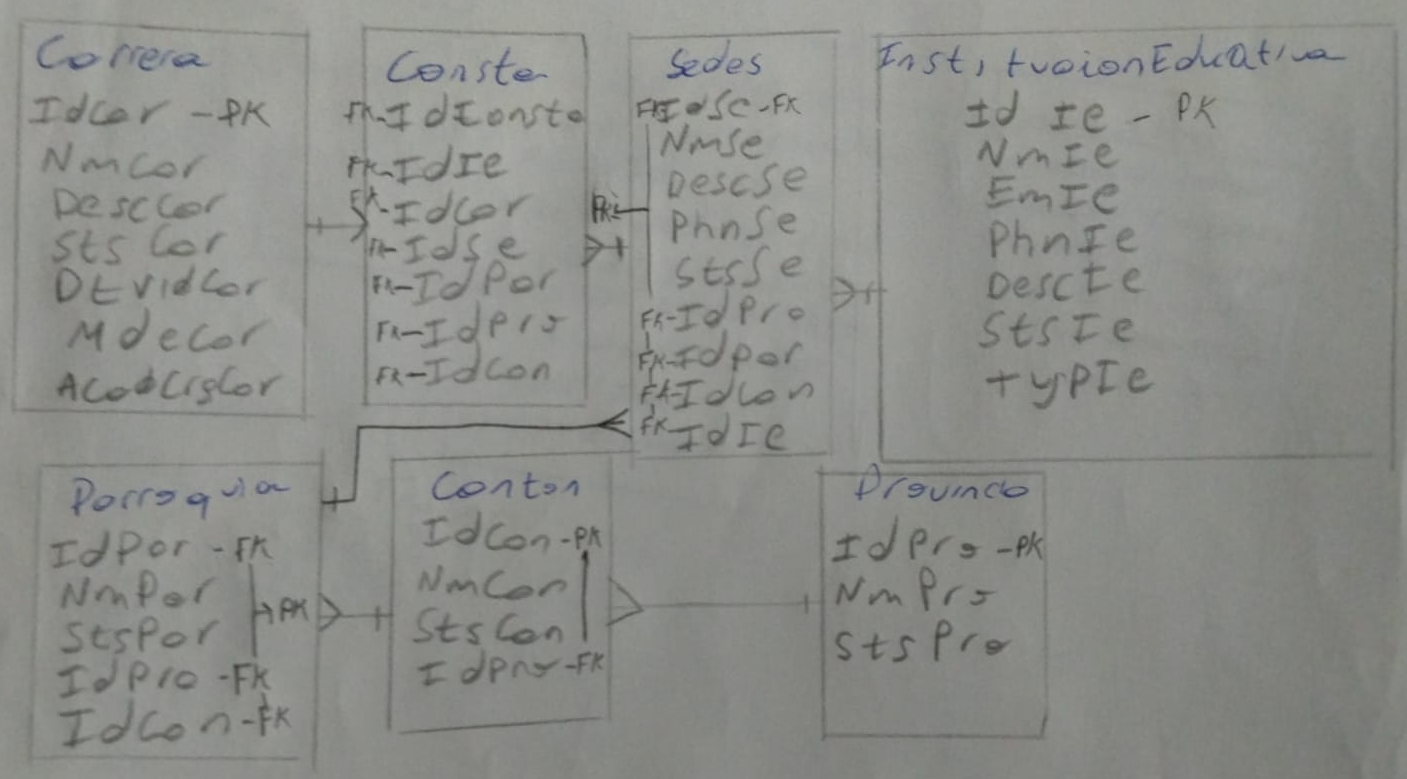 Correra
IdCor - PK
NmCor
DescCor
Sts Cor
DtvidCor
MdeCor
Consta
FK-IdConsta
FK-IdIe
FK-IdCor
FK-IdSe
FK-IdPar
FK-IdPro
FK-IdCan
Sedes
IdSe-FK
NmSe
DescSe
PhnSe
StsSe
PK
FK-IdPro
FK-IdPar
FK-IdCan
FK IdIe
InstitucionEducativa
Id Ie - PK
NmIe
EmIe
PhnIe
DescIe
StsIe
typIe
Parroquia
IdPar - FK
NmPar
StsPar
PK
IdPro - FK
IdCan - FK
Canton
IdCan - PK
NmCan
StsCan
IdPro - FK
Provincia
IdPro - PK
NmPro
StsPro